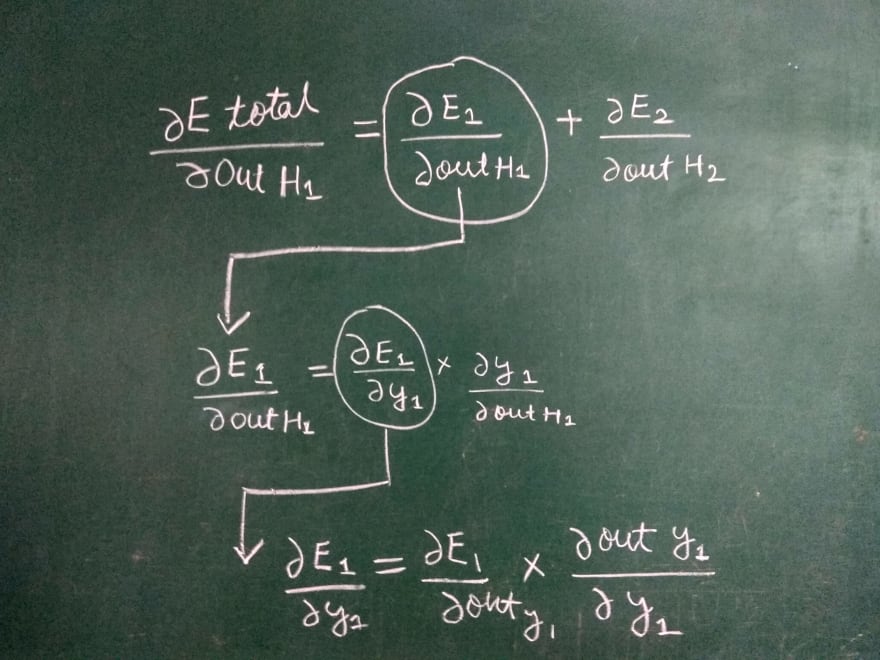 ∂E total / ∂Out H1 = ∂E1 / ∂out H1 + ∂E2 / ∂out H2
∂E1 / ∂out H1 = ∂E1 / ∂y1 × ∂y1 / ∂out H1
∂E1 / ∂y1 = ∂E1 / ∂out y1 × ∂out y1 / ∂y1